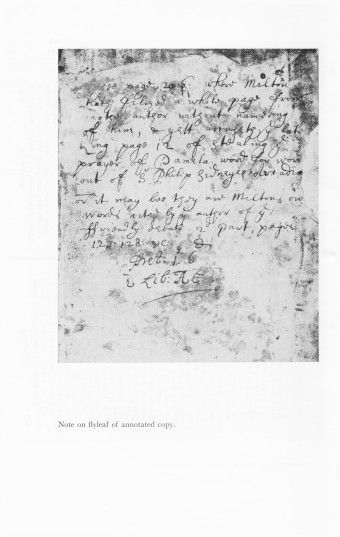 See page 206, where Milton
hath filized a whole page from
another author without nameing
of him, & yett
page 12 of stealing yᵉ
prayer of Pamela, word for word
out of Sʳ Philip Sidneyes Arcadia
or it may bee they are Miltons own
words cited by yᵉ author of yᵉ
ffriendly debate 2 part, pages
127. 128. &c.
Lib:
Note on flyleaf of annotated copy.